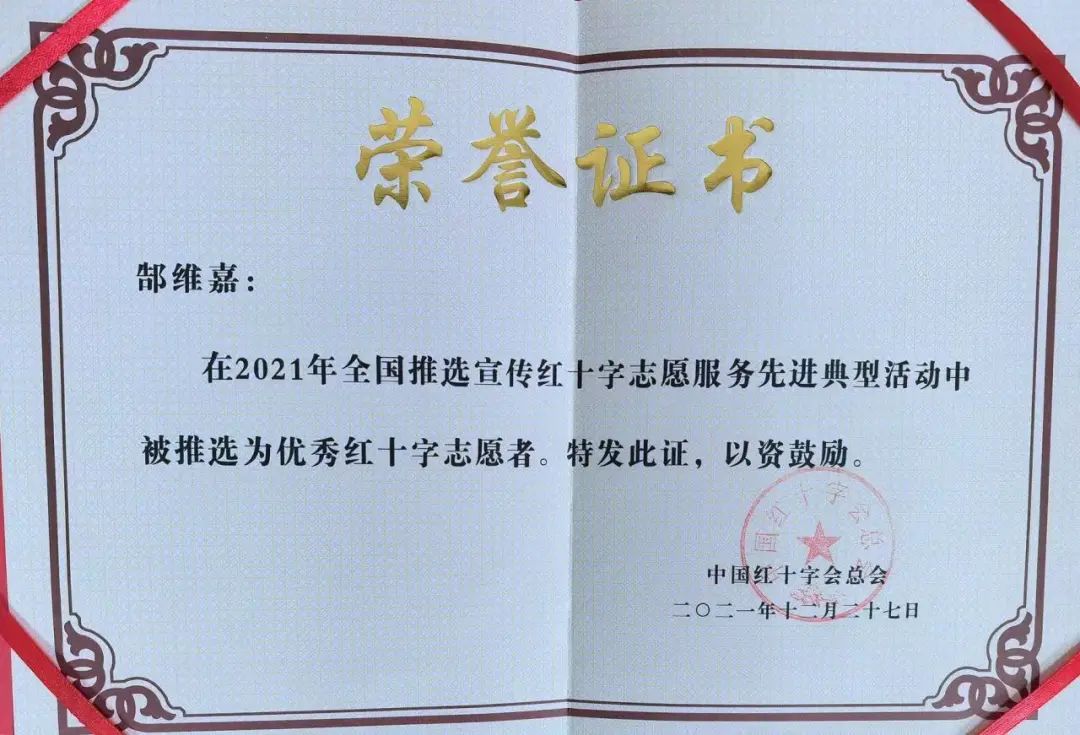 荣誉证书
郜维嘉：
在2021年全国推选宣传红十字志愿服务先进典型活动中
被推选为优秀红十字志愿者。特发此证，以资鼓励。
国红十字会总会
中国红十字会总会
二〇二一年十二月二十七日